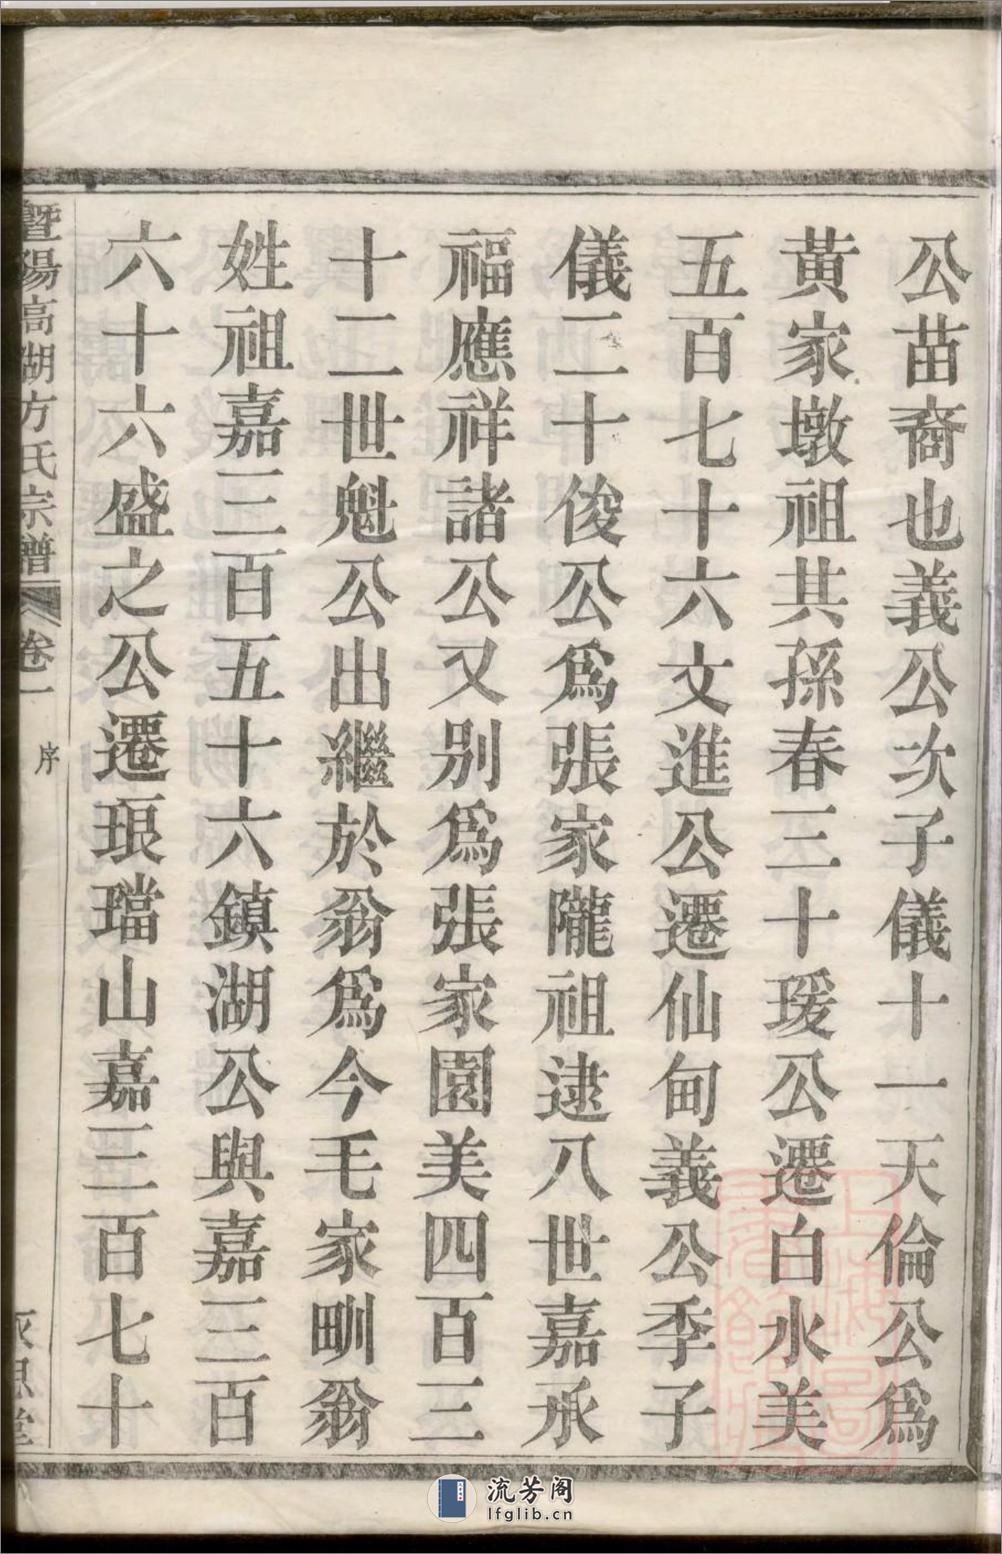 公苗裔也義公次子儀十一天倫公爲
黃家墩祖其孫春三十瑗公遷白水美
五百七十六文進公遷仙甸義公季子
儀二十俊公爲張家隴祖逮八世嘉承
福應祥諸公又别爲張家園美四百三
十二世魁公出繼於翁爲今毛家甽翁
姓祖嘉三百五十六鎮湖公與嘉三百
六十六盛之公遷琅璫山嘉三百七十
暨陽高湖方氏宗譜 卷一 序
流芳阁
lfglib.cn